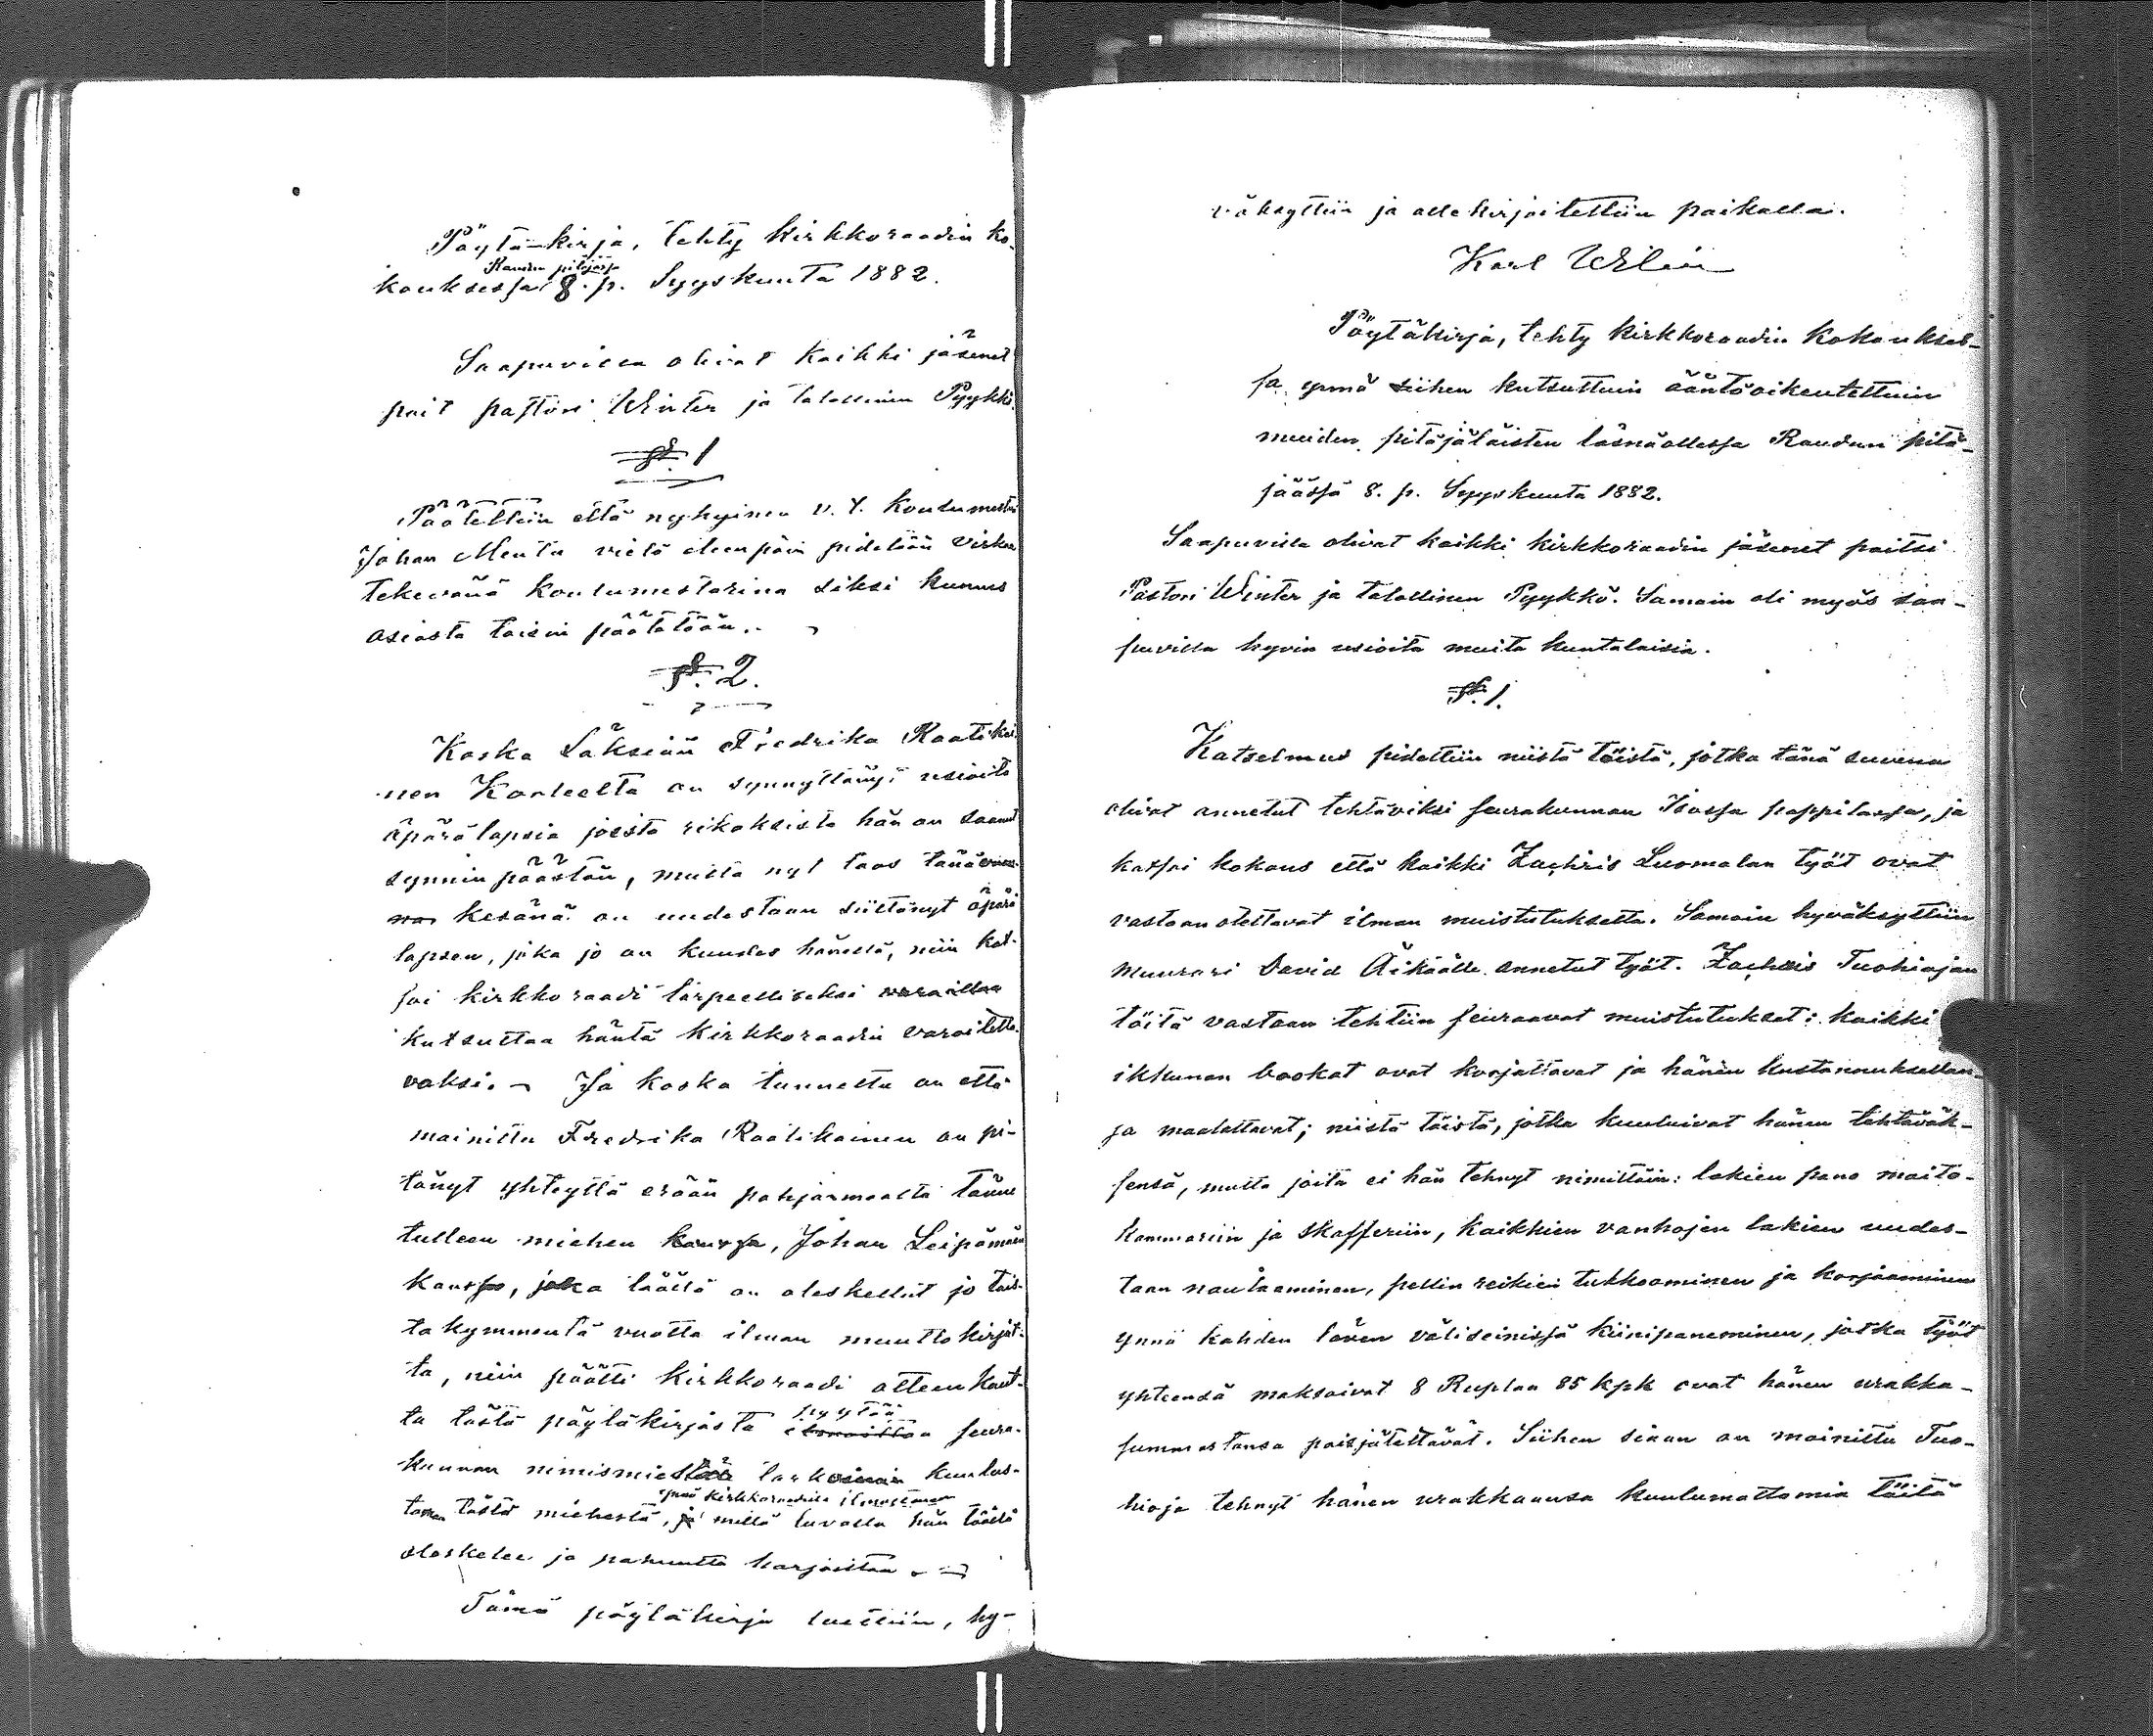 Pöytä-kirja, tehty kirkkoraadin ko-
Raudun pitäjässä
kouksessa 8. p. Syyskuuta 1882.
Saapuvilla olivat kaikki jäsenet
pait pastori Winter ja talollinen Pyykkö.
§. 1
Päätettiin että nykyinen v. t. koulumestari
Johan Mentu vielä eteenpäin pidetään virkaa
tekevänä koulumestarina siksi kunnes
asiasta toisin päätetään.
§. 2.
Koska Läksiän Fredrika Raatikai-
nen Korleelta on synnyttänyt useoita
äpärälapsia joista rikoksista hän on saanut
synnin päästön, mutta nyt taas tänä
kesänä on uudestaan siittänyt äpärä
lapsen, joka jo on kuudes hänellä, niin kat-
soi kirkkoraadi tarpeelliseksi
kutsuttaa häntä kirkkoraadin varoitetta-
vaksi. Ja koska tunnettu on että
mainittu Fredrika Raatikainen on pi-
tänyt yhteyttä erään pohjanmaalta tänne
tulleen miehen kanssa, Johan Leipämäen
kanssa, joka täällä on oleskellut jo tois-
takymmentä vuotta ilman muuttokirjat-
ta, niin päätti kirkkoraadi otteen kaut-
pyytää
ta tästä pöytäkirjasta ilmoittaa seura-
kunnan nimismiestä tarkoin kuulus-
ynnä kirkkoraadille ilmoittamaan
taman tästä miehestä, ja millä luvalla hän täällä
oleskelee ja pahuutta harjoittaa.
Tämä pöytäkirja luettiin, hy-
väksyttiin ja allekirjoitettiin paikalla.
Karl Wilén
Pöytäkirja, tehty kirkkoraadin kokoukses-
sa ynnä siihen kutsuttuin ääntöoikeutettuin
muiden pitäjäläisten läsnäollessa Raudun pitä-
jäässä 8. p. Syyskuuta 1882.
Saapuvilla olivat kaikki kirkkoraadin jäsenet paitsi
Pastori Winter ja talollinen Pyykkö. Samoin oli myös saa-
puvilla hyvin usioita muita kuntalaisia.
§. 1.
Katselmus pidettiin niistä töistä, jotka tänä suvena
olivat annetut tehtäviksi seurakunnan Isossa pappilassa, ja
katsoi kokous että kaikki Zachris Luomalan työt ovat
vastaan otettavat ilman muistutuksetta. Samoin hyväksyttiin
muurari David Äikäälle annetut työt. Zachris Tuohiojan
töitä vastaan tehtiin seuraavat muistutukset: kaikki
ikkunan bookat ovat korjattavat ja hänen kustannuksellan-
sa maalattavat; niistä töistä, jotka kuuluivat hänen tehtäväk-
sensä, mutta joita ei hän tehnyt nimittäin: lakien pano maito-
kammariin ja skafferiin, kaikkien vanhojen lakien uudes-
taan naulaaminen, pellin reikien tukkoaminen ja korjaaminen
ynnä kahden laven väliseinissä kiinipaneminen, jotka työt
yhteensä maksaivat 8 Ruplaa 85 kpk ovat hänen urakka-
summastansa poisjätettävät. Siihen siaan on mainittu Tuo-
hioja tehnyt hänen urakkaansa kuulumattomia töitä